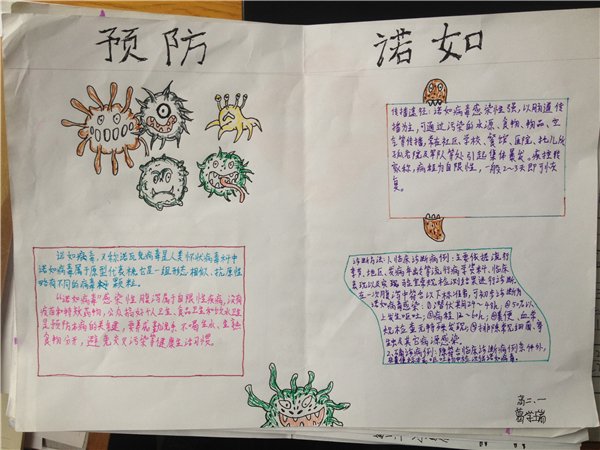 预防 诺如
诺如病毒,又称诺瓦克病毒是人类怀状病毒科中
诺如病毒属于原型代表株它是一组形态相似、抗原性
略有不同的病毒颗粒。
"诺如病毒"感染性腹泻属于自限性疾病,没有
疫苗和特效药物,公众搞好个人卫生、食品卫生和饮水卫生
是预防本病的关键,要养成勤洗手、不喝生水、生熟
食物分开,避免交叉污染等健康生活习惯。
传播途径:诺如病毒感染性强,以肠道传
播为主,可通过污染的水源、食物、物品、空
气等传播,常在社区、学校、餐馆、医院、托儿所
孤老院及军队等处引起集体暴发。疾控专
家称,病程为自限性,一般2~3天即可恢
复。
诊断方法:1.临床诊断病例:主要依据流行
季节、地区、发病年龄等流行病学资料、临床
表现以及实验室常规检测结果进行诊断
在一次腹泻中符合以下标准者,可初步诊断为
诺如病毒感染:①潜伏期24~48h ②50%以
上发生呕吐;③病程12~60h;④粪便、血常
规检查无特殊发现⑤排除常见细菌、寄
生虫及其它病原感染
2、确诊病例:除符合临床诊断病例条件外,
高二、一